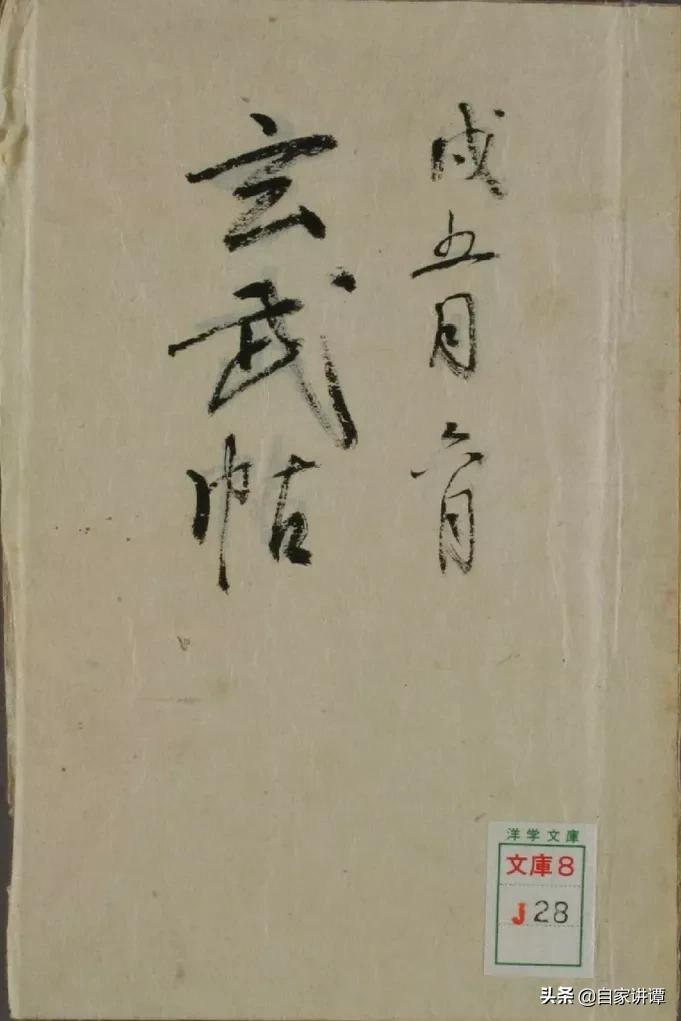 戌五月六月
玄武帖
洋学文庫
文庫8
J28
头条 @自家讲谭